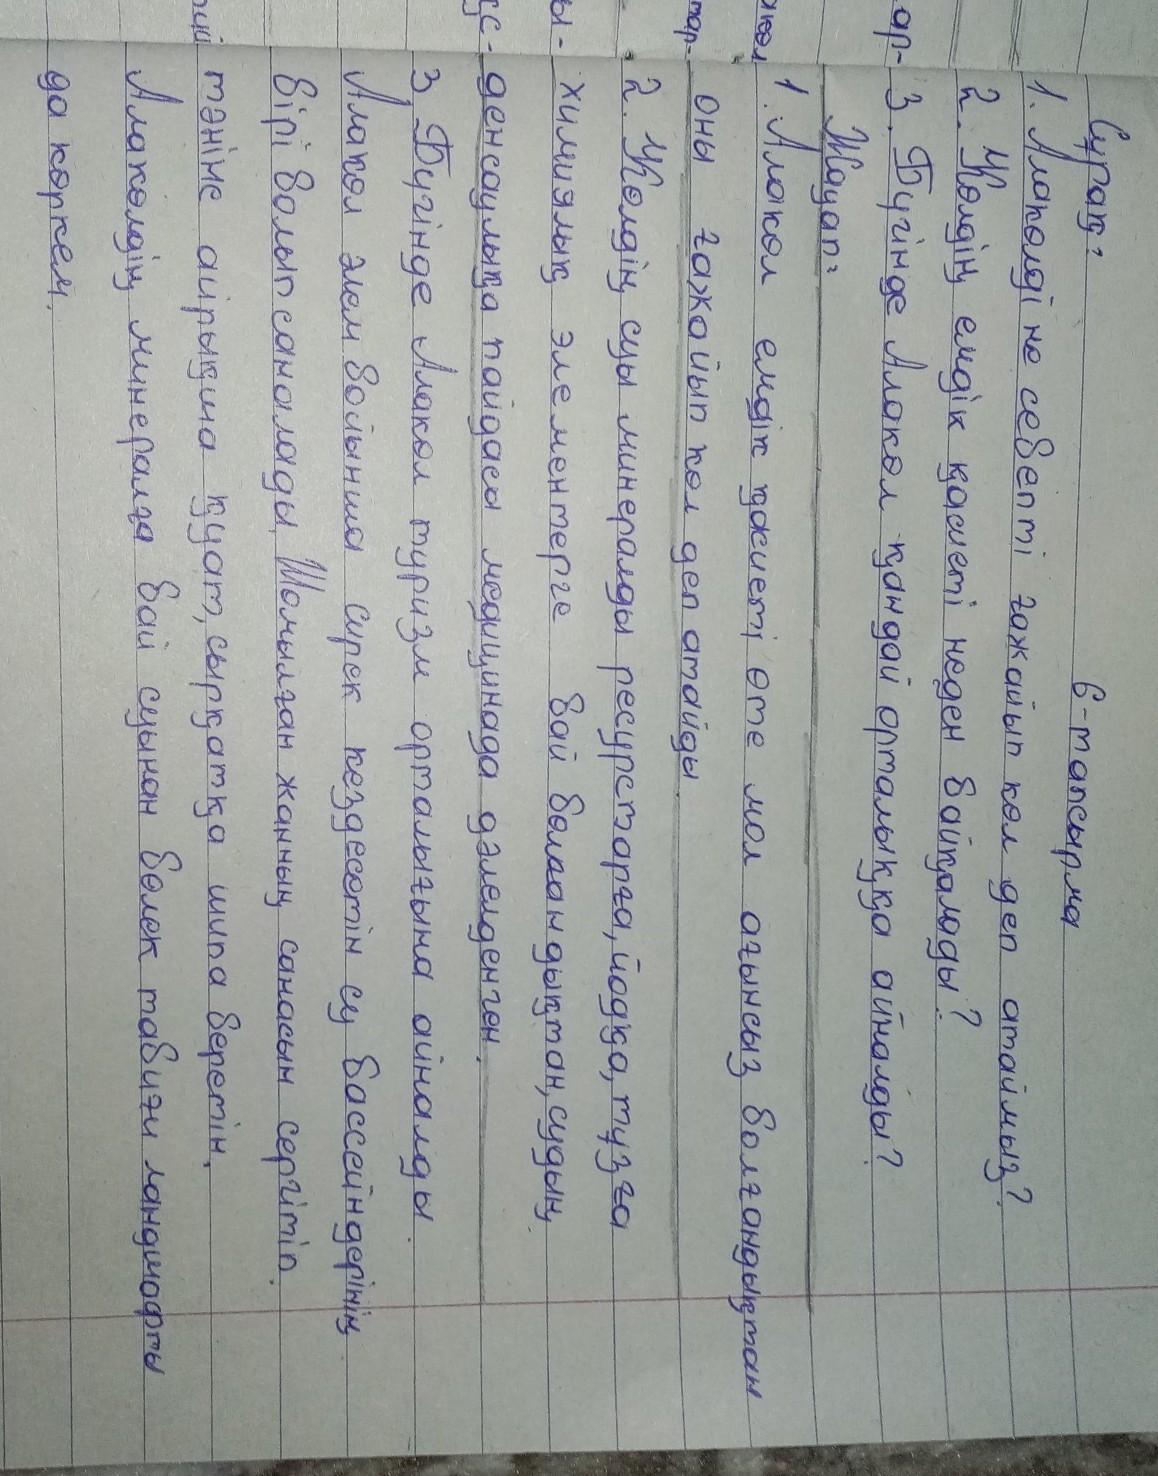 6-тапсырма
Сұрақ:
1. Алакөлді не себепті ғажайып көл деп атаймыз?
2. Көлдің емдік қасиеті неден байқалады?
3. Бүгінде Алакөл қандай орталыққа айналды?
Жауап:
1. Алакөл емдік қасиеті өте мол ағынсыз болғандықтан
оны ғажайып көл деп атайды.
2. Көлдің суы минералды ресурстарға, йодқа, тұзға
химиялық элементерге бай болғандықтан, судың
денсаулыққа пайдасы медицинада дәлелденген.
3. Бүгінде Алакөл туризм орталығына айналды.
Алакөл әлем бойынша сирек кездесетін су бассейндерінің
бірі болып саналады. Шомылған жанның санасын сергітіп,
тәніне айрықша қуат, сырқатқа шипа беретін,
Алакөлдің минералға бай суынан бөлек табиғи ландшафты
да көркем.